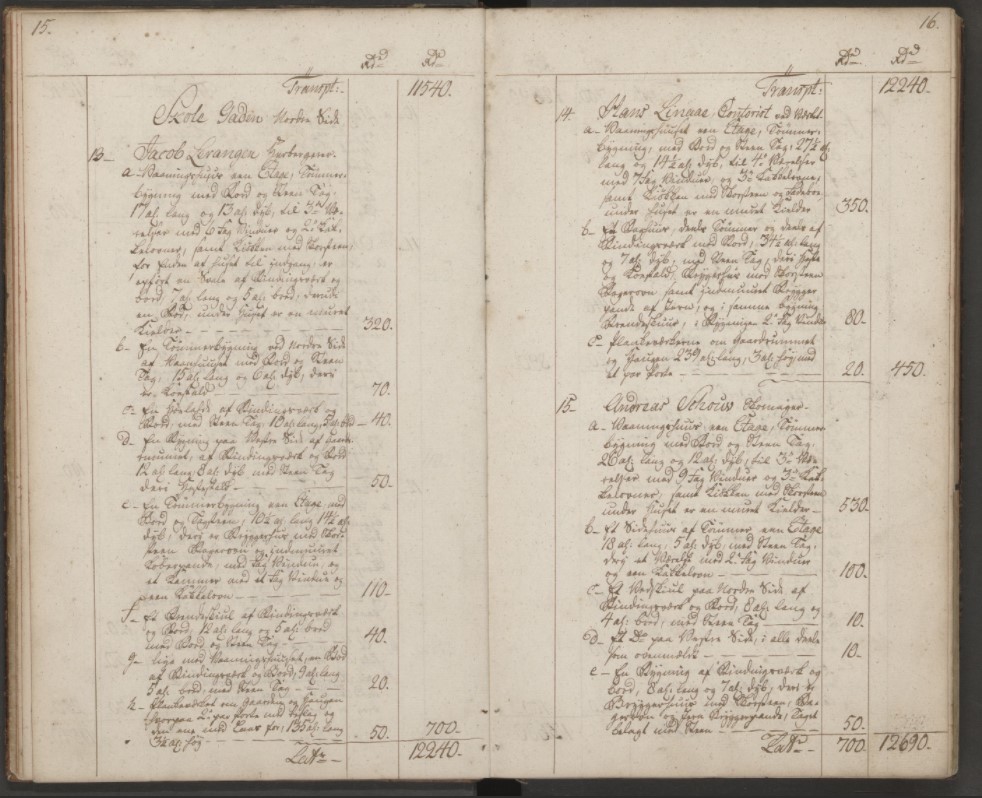 15.
Rd Rd
Transpt: 11540.
Skole Gaden Norden Side
13 Jacob Herberger.
a Vaaningshuus een Etage, Tømmer
bygning med Bord og Steen Tag,
17 al: lang og 13 al: dyb, til 3 Væ-
relser med 6 fag Vinduer og 2 Kak-
kelovner, samt Kikken med Skorsteen
for Enden af huset til indgang, er
opført en Svale af Bindingsværk og
bord, 7 al: lang og 5 al: bred,
en Bod, under Huset er en muret
Kielder 320.
b En Tømmerbygning ved Norden Side
af Vaanhuuset med Bord og Steen
Tag, 15 al: lang og 6 al: dyb, deri
70.
c En af Bindingsværk og
Bord, med Steen Tag, 10 al: lang, 40.
d En Bygning paa Vestre Side af
af Bindingsværk og Bord
12 al: lang 8 al: dyb med Steen Tag
deri 50.
e En Tømmerbygning een Etage med
Bord og Tagsteen, 10½ al: lang 14½ al:
dyb, deri er Bryggerhus med Skor-
steen Bagerovn og indmuret
Kobberpande, med fag Vinduer, og
et Kammer med et fag Vindue og
een Kakkelovn 110.
f Et Brendeskiul af Bindingsværk
og Bord, 12 al: lang og 5 al: bred
med Bord og Steen Tag 40.
g lige mod Vaaningshuuset, en Bod
af Bindingsværk og Bord, 9 al: lang
5 al: bred, med Steen Tag 20.
h Plankeværket om Gaarden og Haugen
2 par porte med beslag og
den ene med Laas for, 135 al: lang
3½ al: høy 50. 700.
Lat 12240.
16.
Rd Rd
Transpt: 12240.
14. Hans Contorist ved
a Vaaningshuuset een Etage, Tømmer-
bygning, med Bord og Steen Tag, 27½ al:
lang og 14½ al: dyb, til 4 Værelser
med 7 fag Vinduer, og 3 Kakkelovne,
samt Kikken med Skorsteen og
under huset er en muret Kielder 350.
b Et Baghuus, deels Tømmer og deels af
Bindingsværk med Bord, 34½ al: lang
og 7 al: dyb, med Steen Tag, deri
og Bryggerhus med Skorsteen
Bagerovn samt indmuret Brygger
pande af Jern, og i samme bygning
Brendeskuur, i Bygningen 2 fag Vinduer 80.
c Plankeværkerne om Gaardrummet
og Haugen 239 al: lang, 3 al: høy med
et par porte 20. 450.
15. Andreas Schouw Skomager
a Vaaningshuus een Etage, Tømmer
bygning med Bord og Steen Tag,
26 al: lang og 12 al: dyb, til 3 Væ-
relser med 9 fag Vinduer og 3 Kak-
kelovner, samt Kikken med Skorsteen
under huset er en muret Kielder 530.
b Et Sidehuus af Tømmer een Etage
18 al: lang, 5 al: dyb, med Steen Tag,
deri et Værelse med 2 fag Vinduer
og een Kakkelovn 100.
c Et Vedskiul paa Norden Side af
Bindingsværk og Bord, 8 al: lang og
4 al: bred, med Steen Tag 10.
d Et Do paa Vestre Side, i alle deele
som ovenmældte 10.
e En Bygning af Bindingsværk og
bord, 8 al: lang og 7 al: dyb, deri er
Bryggerhuus med Skorsteen, Ba-
gerovn og Jern Bryggerpande, Taget
belagt med Steen 50.
Lat 700 12690.